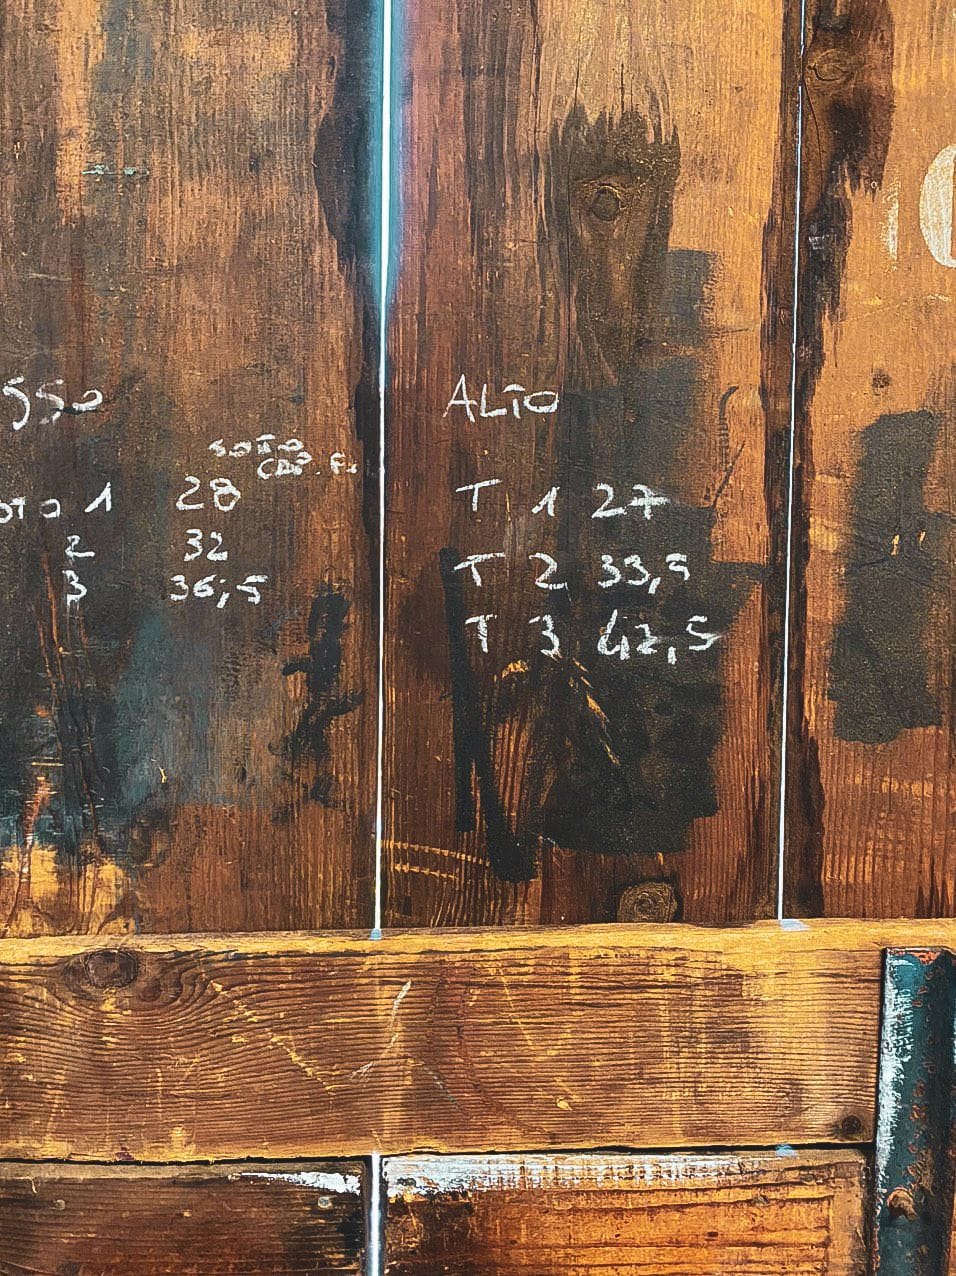 sso
SOTTO
CAP.
oto 1 28
2 32
3 36,5
ALTO
T 1 27
T 2 33,5
T 3 42,5